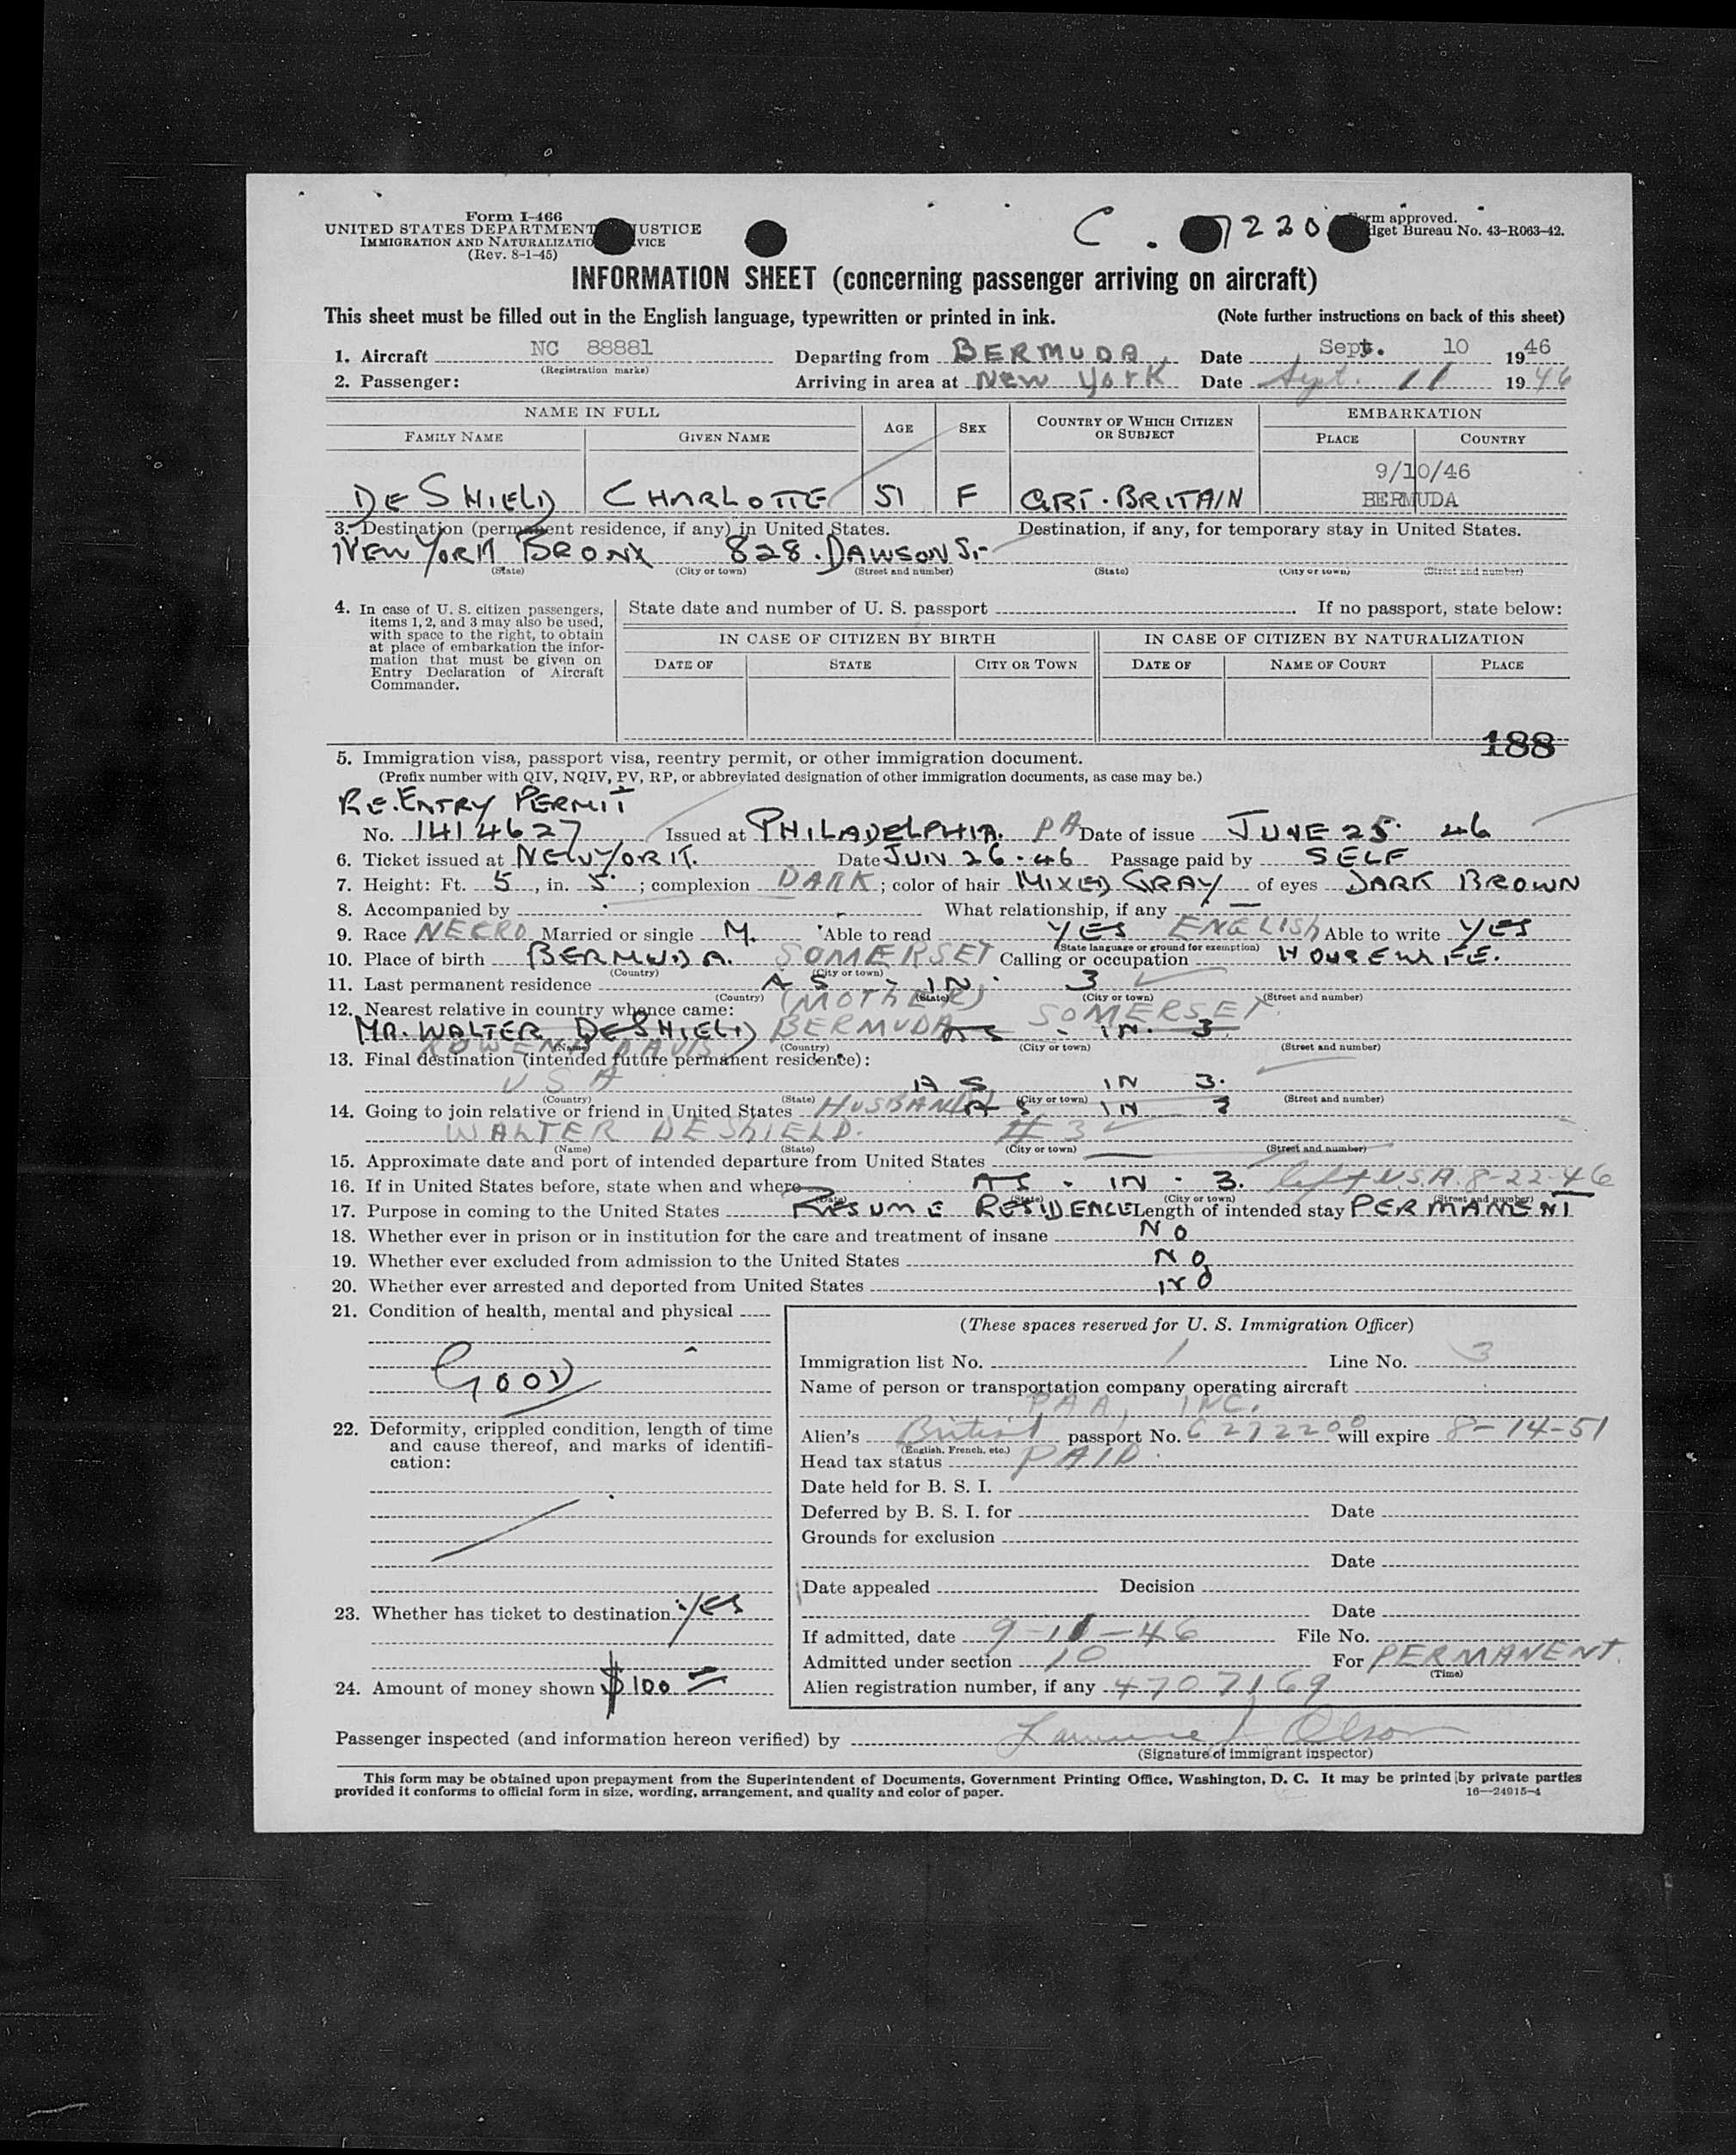 Form I-466
UNITED STATES DEPARTMENT JUSTICE
IMMIGRATION AND NATURALIZATIO VICE
(Rev. 8-1-45)
C . 7220
rm approved.
dget Bureau No. 43-R063-42.
INFORMATION SHEET (concerning passenger arriving on aircraft)
This sheet must be filled out in the English language, typewritten or printed in ink. (Note further instructions on back of this sheet)
1. Aircraft NC 88881 Departing from BERMUDA Date Sept. 10 1946
(Registration marks)
2. Passenger: Arriving in area at NEW YORK Date Sept. 11 1946
NAME IN FULL AGE SEX COUNTRY OF WHICH CITIZEN OR SUBJECT EMBARKATION
FAMILY NAME GIVEN NAME PLACE COUNTRY
9/10/46
DESHIELD CHARLOTTE 51 F GRT. BRITAIN BERMUDA
3. Destination (permanent residence, if any) in United States. Destination, if any, for temporary stay in United States.
NEW YORK BRONX 828. DAWSON ST
(State) (City or town) (Street and number) (State) (City or town) (Street and number)
4. In case of U. S. citizen passengers, items 1, 2, and 3 may also be used, with space to the right, to obtain at place of embarkation the information that must be given on Entry Declaration of Aircraft Commander.
State date and number of U. S. passport . If no passport, state below:
IN CASE OF CITIZEN BY BIRTH IN CASE OF CITIZEN BY NATURALIZATION
DATE OF STATE CITY OR TOWN DATE OF NAME OF COURT PLACE
188
5. Immigration visa, passport visa, reentry permit, or other immigration document.
(Prefix number with QIV, NQIV, PV, RP, or abbreviated designation of other immigration documents, as case may be.)
RE.ENTRY PERMIT
No. 1414627 Issued at PHILADELPHIA. PA Date of issue JUNE 25. 46
6. Ticket issued at NEW YORK. Date JUN 26.46 Passage paid by SELF
7. Height: Ft. 5, in. 5; complexion DARK; color of hair MIXED GRAY of eyes DARK BROWN
8. Accompanied by What relationship, if any —
9. Race NEGRO Married or single M. Able to read YES ENGLISH Able to write YES
(State language or ground for exemption)
10. Place of birth BERMUDA. SOMERSET Calling or occupation HOUSEWIFE.
(Country) (City or town)
11. Last permanent residence AS - IN. 3
(Country) (State) (City or town) (Street and number)
12. Nearest relative in country whence came: (MOTHER)
MR. WALTER DESHIELD BERMUDA SOMERSET. AS - IN. 3.
ROWENA DAVIS
(Name) (Country) (City or town) (Street and number)
13. Final destination (intended future permanent residence):
USA AS IN 3.
(Country) (State) (City or town) (Street and number)
14. Going to join relative or friend in United States HUSBAND AS IN 3
WALTER DESHIELD. #3
(Name) (State) (City or town) (Street and number)
15. Approximate date and port of intended departure from United States —
16. If in United States before, state when and where AS . IN . 3. left U.S.A. 8-22-46
(Date) (State) (City or town) (Street and number)
17. Purpose in coming to the United States RESUME RESIDENCE Length of intended stay PERMANENT
18. Whether ever in prison or in institution for the care and treatment of insane NO
19. Whether ever excluded from admission to the United States NO
20. Whether ever arrested and deported from United States NO
21. Condition of health, mental and physical
GOOD
22. Deformity, crippled condition, length of time and cause thereof, and marks of identification:
23. Whether has ticket to destination YES
24. Amount of money shown $100
(These spaces reserved for U. S. Immigration Officer)
Immigration list No. 1 Line No. 3
Name of person or transportation company operating aircraft
PAA, INC.
Alien's British passport No. 627220 will expire 8-14-51
(English, French, etc.)
Head tax status PAID
Date held for B. S. I.
Deferred by B. S. I. for Date
Grounds for exclusion
Date
Date appealed Decision
Date
If admitted, date 9-11-46 File No.
Admitted under section 10 For PERMANENT.
(Time)
Alien registration number, if any 4707169
Passenger inspected (and information hereon verified) by Lawrence J. Olson
(Signature of immigrant inspector)
This form may be obtained upon prepayment from the Superintendent of Documents, Government Printing Office, Washington, D. C. It may be printed by private parties
provided it conforms to official form in size, wording, arrangement, and quality and color of paper. 16—24915-4